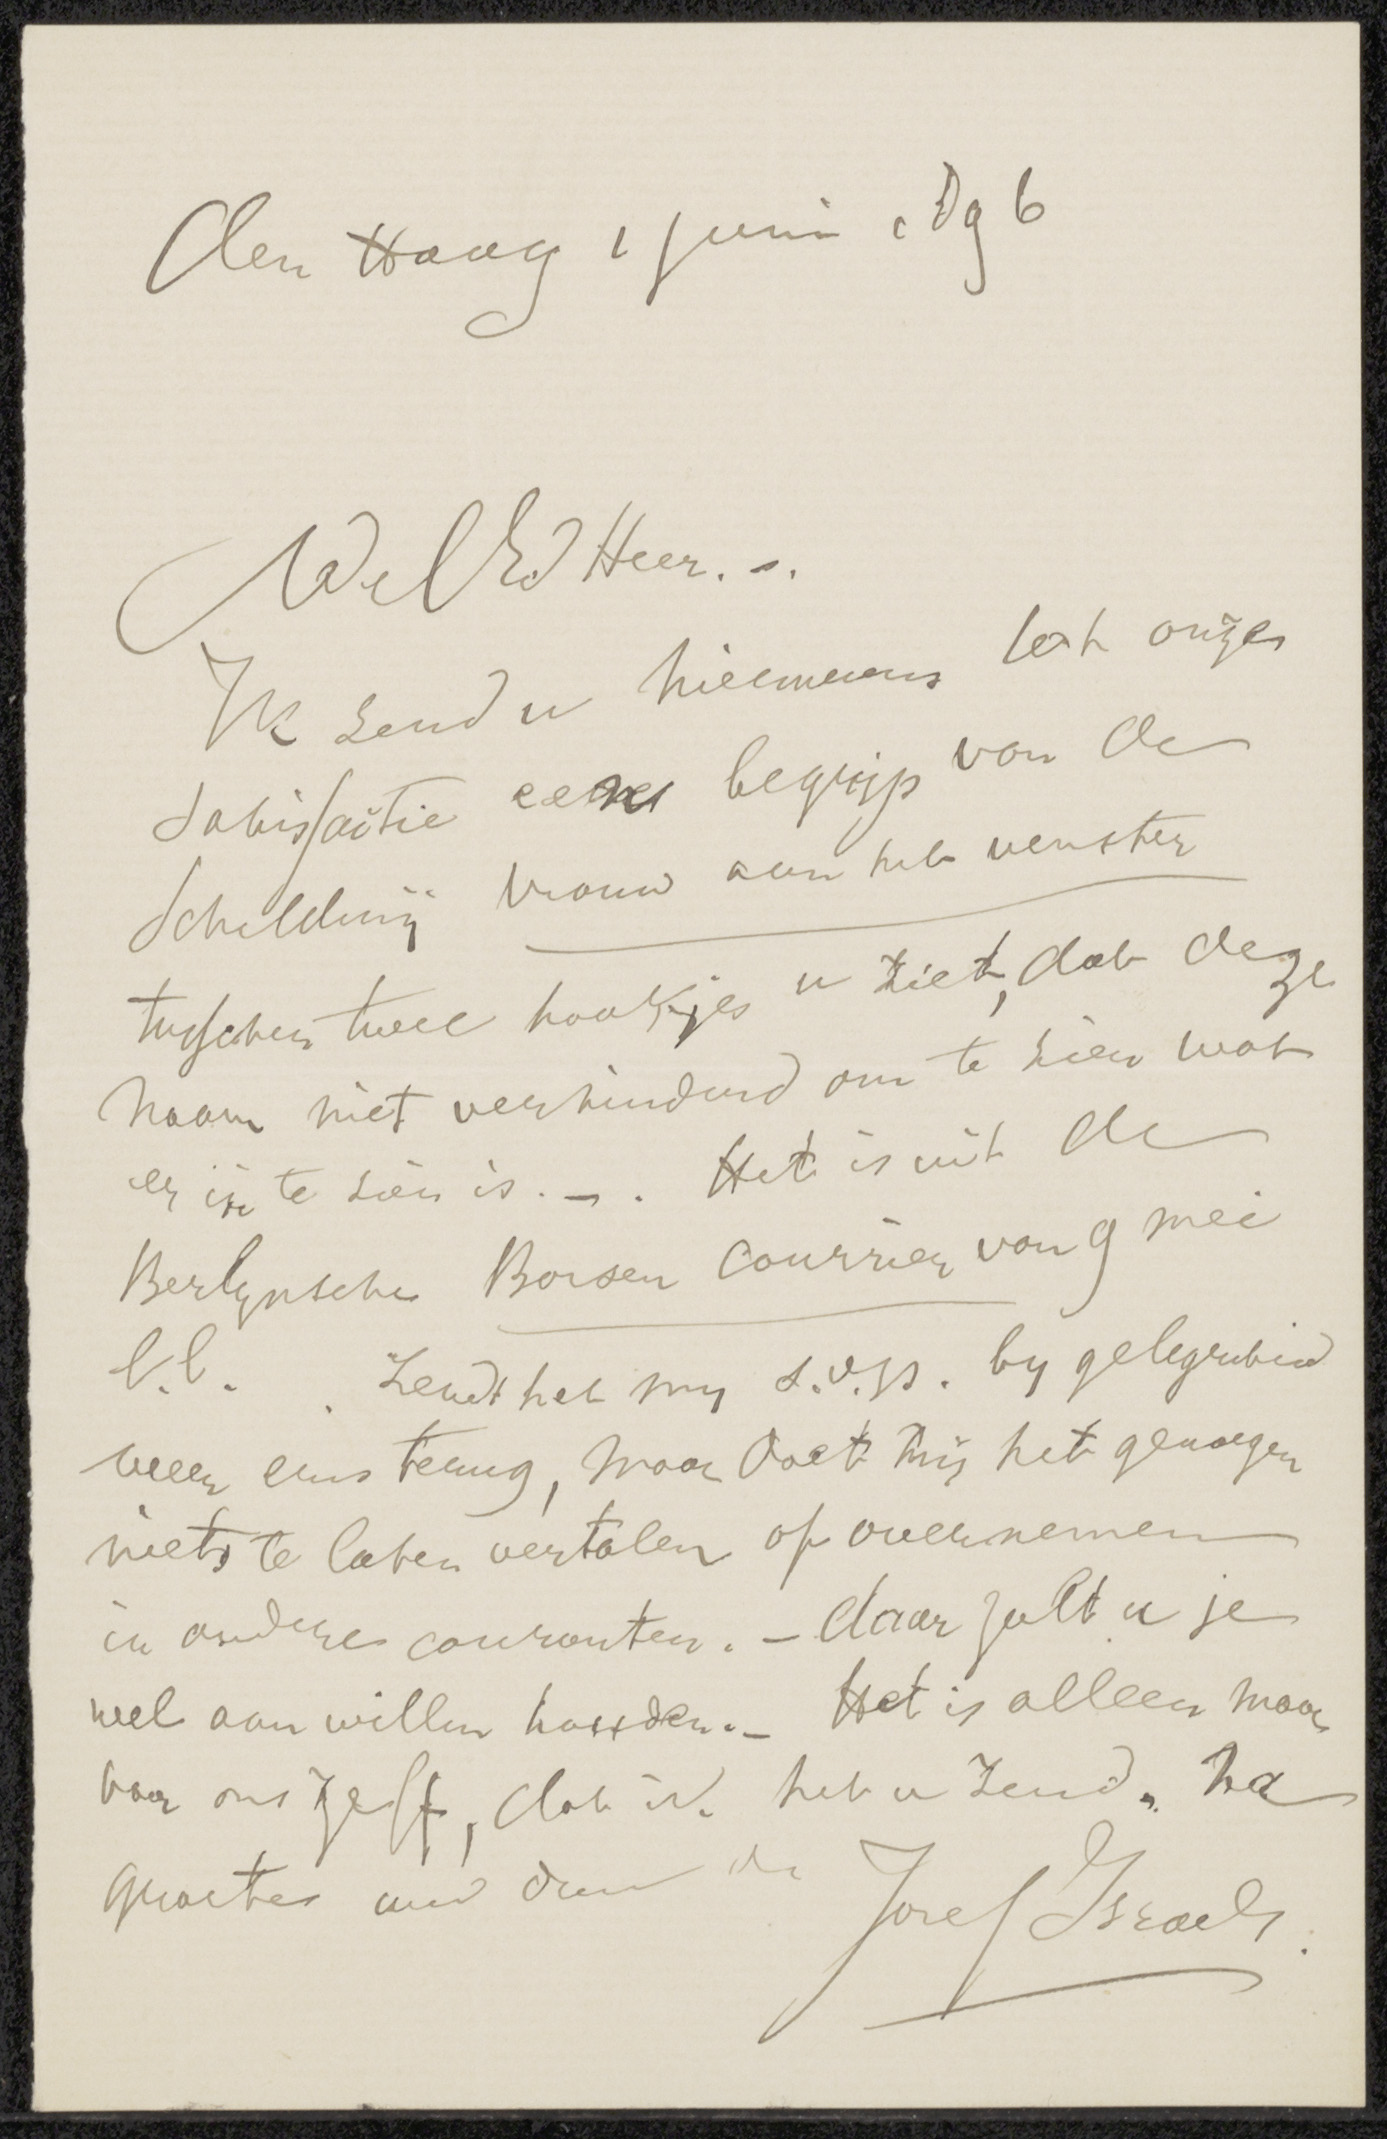 den Haag 1 Juni 1896
WelEd Heer. -.
Ik zend u hiermeens tot onze
satisfactie eene begrijp van de
Schilderij Vrouw aan het venster
tusschen twee haakjes u ziet, dat deze
naam niet verhinderd om te zien wat
er in te zien is. -. Het is uit de
Berlynsche Borsen Courrier van 9 mei
l.l. Zendt het my s.v.p. by gelegenheid
weer eens terug, maar doet mij het genoegen
niets te laten vertalen of overnemen
in andere couranten. - daar zult u je
wel aan willen houden. - Het is alleen maar
voor ons zelf, dat ik het u zend. na
groete uw dnr
Jozef Israels.